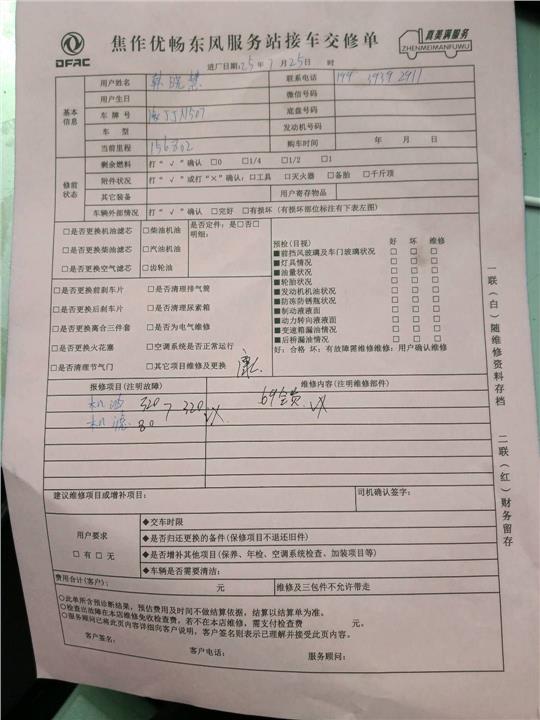 DFAC
焦作优畅东风服务站接车交修单
真美满服务
ZHENMEIMANFUWU
进厂日期:25年7月25日 时
基本信息
用户姓名 韩晓慧 联系电话 199 3939 2911
用户生日 微信号码
车牌号 JJN507 底盘号码
车型 发动机号码
当前里程 156302 购车时间 年 月 日
修前状态
剩余燃料 打“√”确认 □0 □1/4 □1/2 □1
附件状况 打“√”或打“×”确认:□工具 □灭火器 □备胎 □千斤顶
其它装备 用户寄存物品
车辆外部情况 打“√”确认 □完好 □有损坏(有损坏部位标注有下表左图)
□是否更换机油滤芯 □柴油机油 是否定件:是□否□
明细:
□是否更换柴油滤芯 □汽油机油
□是否更换空气滤芯 □齿轮油
□是否更换前刹车片 □是否清理排气筒
□是否更换后刹车片 □是否清理尿素箱
□是否更换离合三件套 □是否为电气维修
□是否更换火花塞 □空调系统是否正常运行
□是否清理节气门 □其它项目维修及更换
预检(目视) 好 坏 维修
■前挡风玻璃及车门玻璃状况 □ □ □
■灯具情况 □ □ □
■油量状况 □ □ □
■轮胎状况 □ □ □
■发动机机油状况 □ □ □
■防冻防锈瓶状况 □ □ □
■制动液液面 □ □ □
■动力转向液液面 □ □ □
■变速箱漏油情况 □ □ □
■后桥漏油情况 □ □ □
好:合格 坏:有故障需维修维修:用户确认维修
报修项目(注明故障) 维修内容(注明维修部件)
机油 320 7 320 VX 69全员 VX
机滤 80
建议维修项目或增补项目: 司机确认签字:
用户要求
□有□无
◆交车时限
◆是否归还更换的备件(保修项目不退还旧件)
◆是否增补其他项目(保养、年检、空调系统检查、加装项目等)
◆车辆是否需要清洁:
费用合计(客户): 元 维修及三包件不允许带走
○此单所含预诊断结果,预估费用及时间不做结算依据,结算以结算单为准。
○检查出故障在本店维修免收检查费,若不在本店维修,需支付检查费 元。
○服务顾问已将此页内容详细向客户说明,客户签名则表示已理解并接受此页内容。
客户签名: 客户电话: 服务顾问:
一联(白)随维修资料存档
二联(红)财务留存